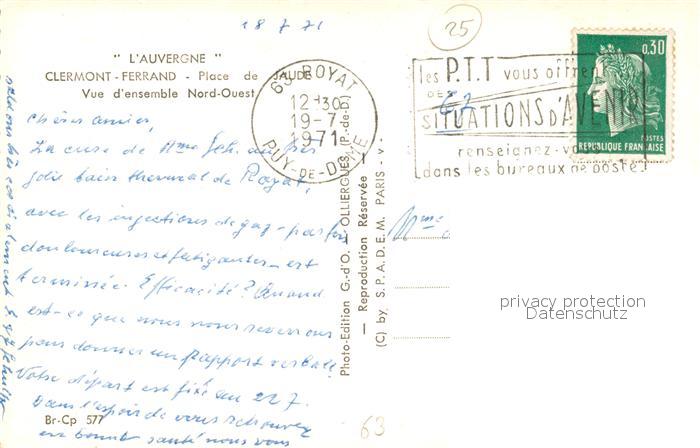 18 7 71
25
" L'AUVERGNE "
CLERMONT-FERRAND - Place de JAUDE
Vue d'ensemble Nord-Ouest
63 ROYAT
12H30
19-7
1971
PUY-DE-DOME
les P.T.T vous offrent
DES
SITUATIONS d'AVENIR
renseignez-vous
dans les bureaux de poste!
0,30
POSTES
REPUBLIQUE FRANÇAISE
Chères amies,
La cure de Mme Sch. au très
joli bain thermal de Royat,
avec les injections de gaz - parfois
douloureuses et fatigantes - est
terminée. Efficacité? Quand
est-ce que nous nous reverrons
pour donner un rapport verbal?
Notre départ est fixé au 22 7.
Dans l'espoir de vous retrouver
en bonne santé nous vous
saluons très cordialement
Br-Cp 577
Photo-Edition G.-d'O. - OLLIERGUES (P.-de-D.)
— Reproduction Réservée —
(C) by S.P.A.D.E.M. PARIS - v -
Mme
63
privacy protection
Datenschutz